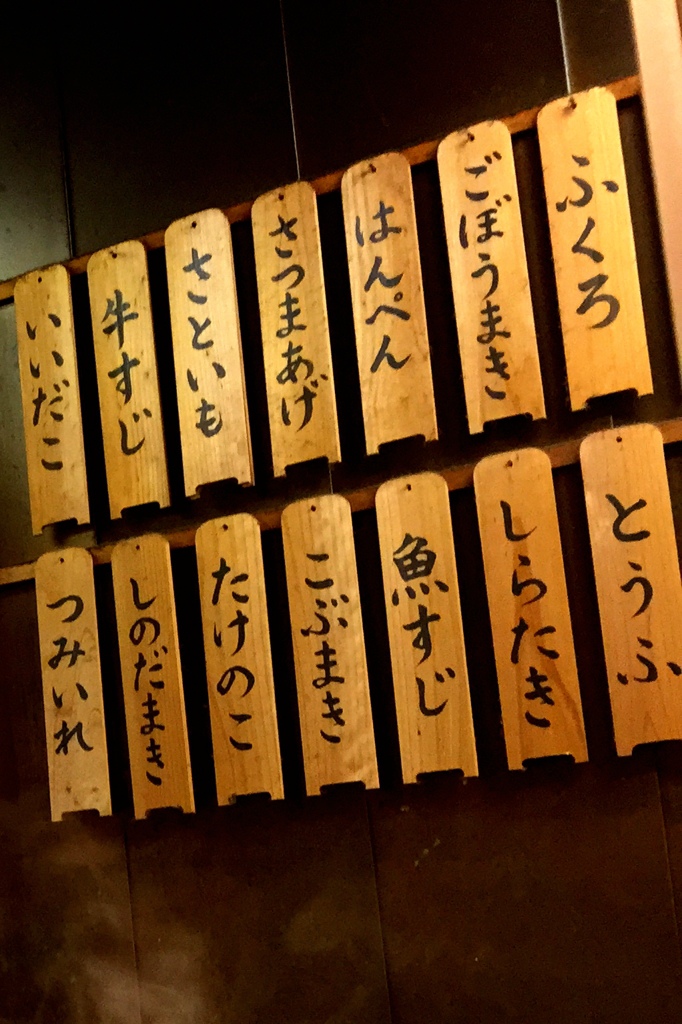 ふくろ
ごぼうまき
はんぺん
さつまあげ
さといも
牛すじ
いいだこ
とうふ
しらたき
魚すじ
こぶまき
たけのこ
しのだまき
つみいれ